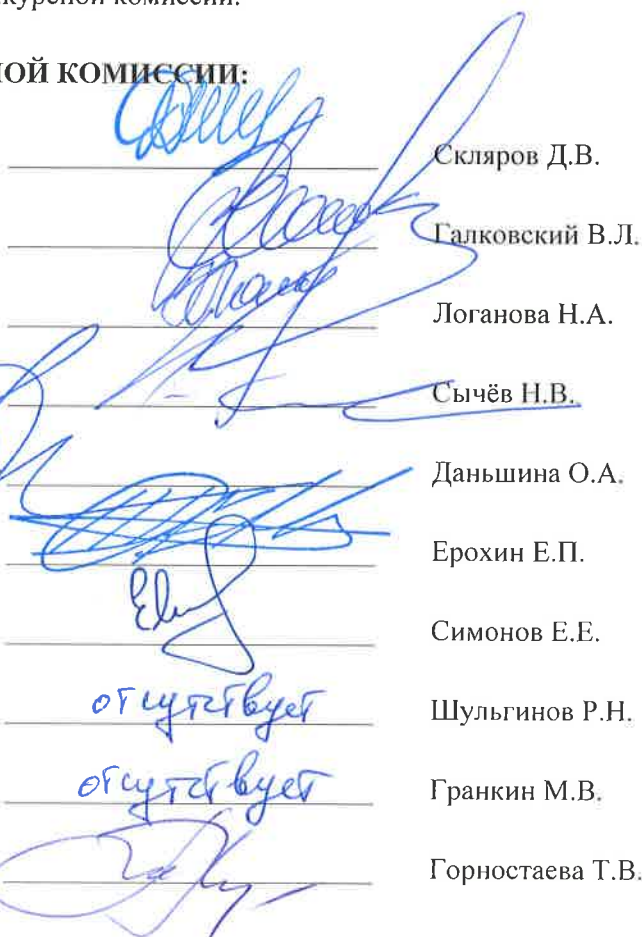 курсной комиссии.
НОЙ КОМИССИИ:
Скляров Д.В.
Галковский В.Л.
Логанова Н.А.
Сычёв Н.В.
Даньшина О.А.
Ерохин Е.П.
Симонов Е.Е.
отсутствует Шульгинов Р.Н.
отсутствует Гранкин М.В.
Горностаева Т.В.